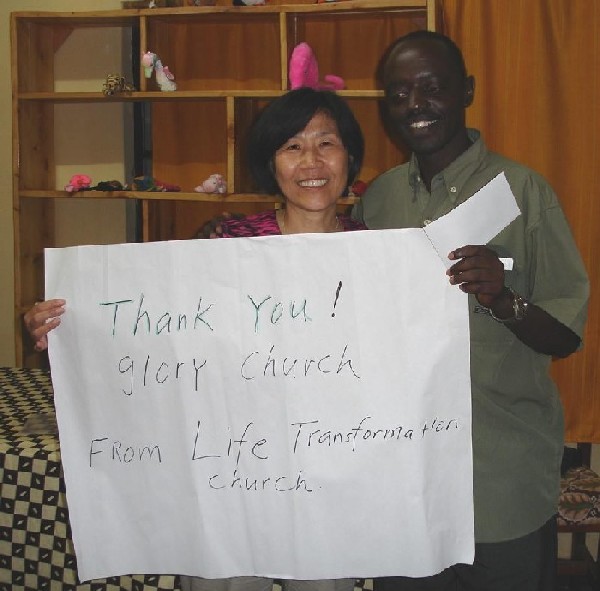 Thank You!
glory Church
FROM Life Transformation
church.